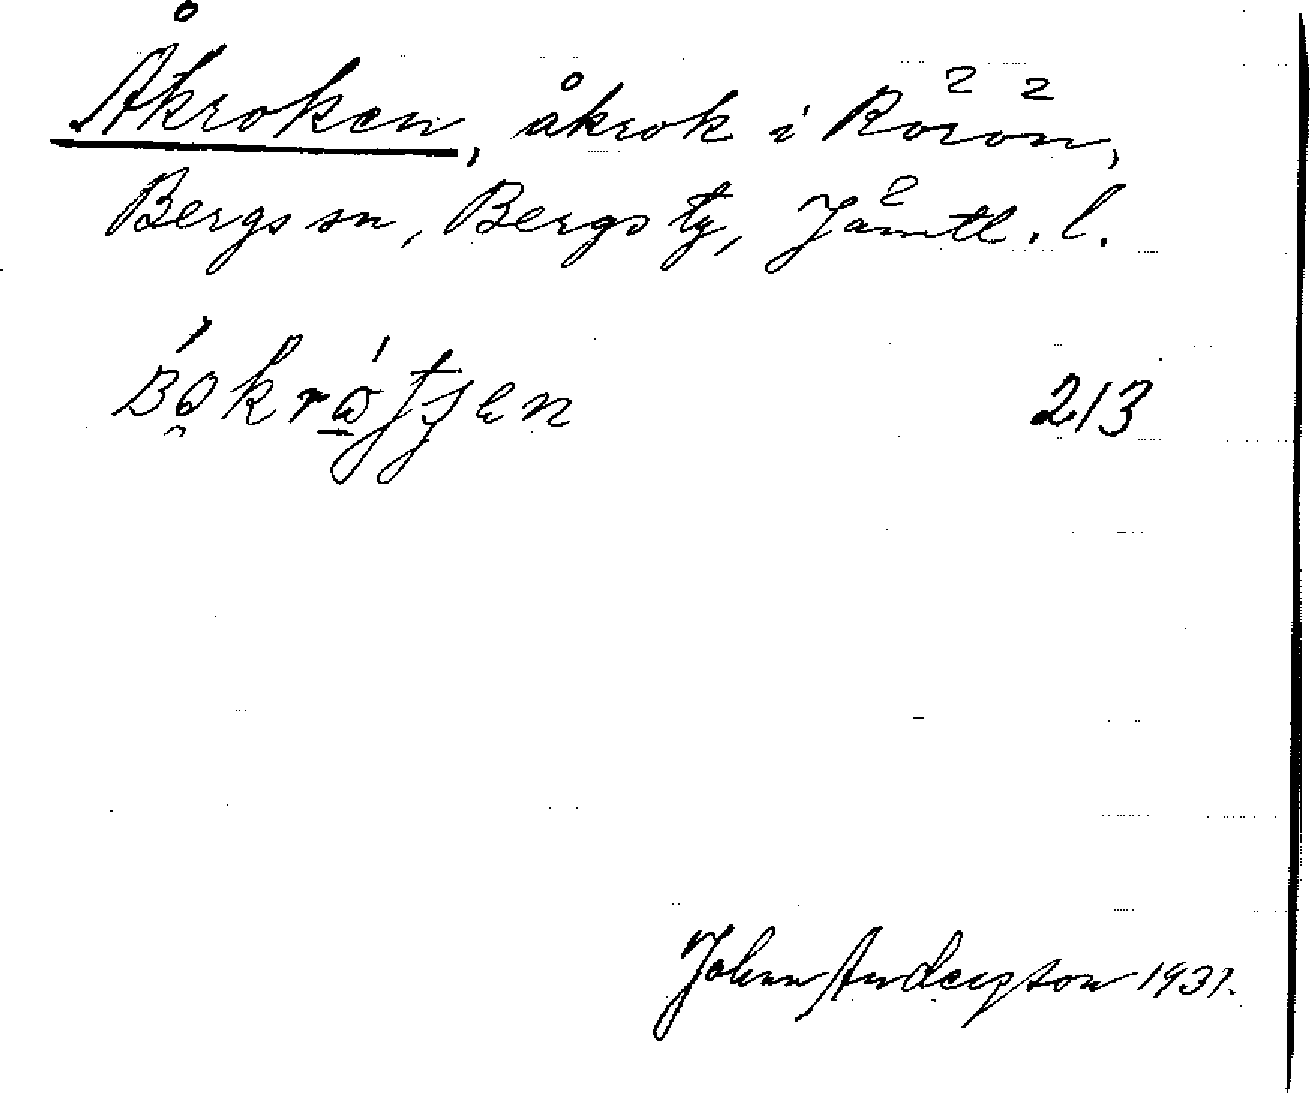 Åkroken, åkrok i Rörön,
Bergs sn, Bergs tg, Jämtl. l.
213
John Andersson 1931.